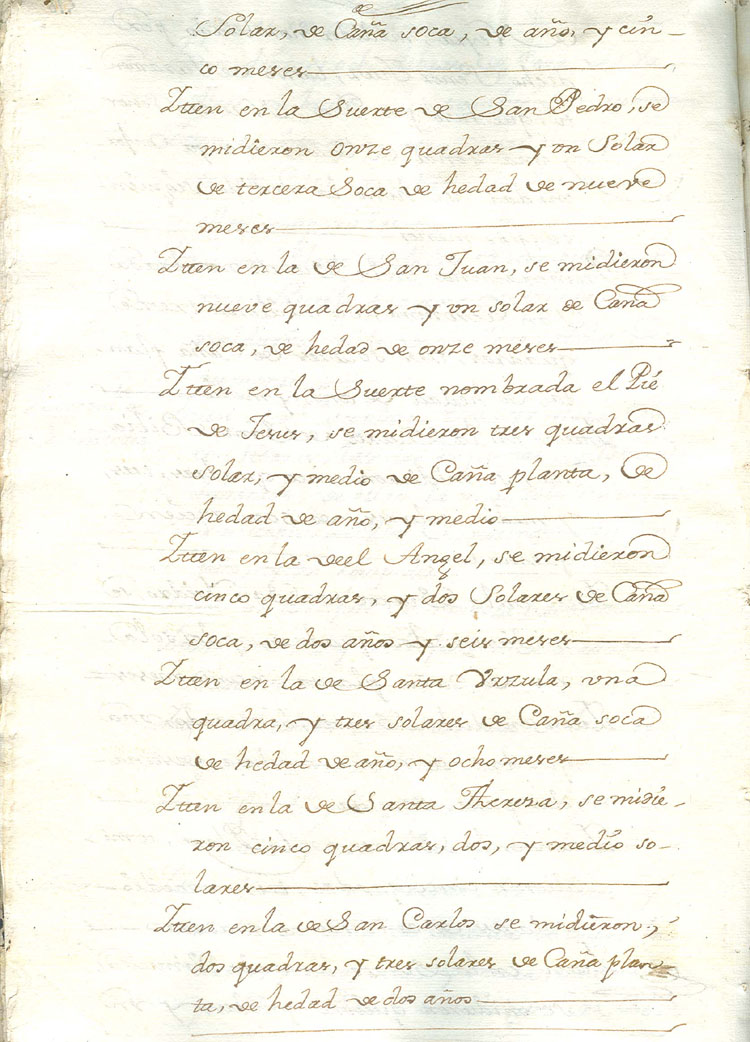 Solar, de Caña soca, de año, y cin-
co meses
Ytten en la Suerte de San Pedro, se
midieron onze quadras y vn Solar
de tercera Soca de hedad de nueve
meses
Ytten en la de San Juan, se midieron
nueve quadras y vn solar de Caña
soca, de hedad de onze meses
Ytten en la Suerte nombrada el Pié
de Jesus, se midieron tres quadras
solar, y medio de Caña planta, de
hedad de año, y medio
Ytten en la deel Angel, se midieron
cinco quadras, y dos Solares de Caña
soca, de dos años y seis meses
Ytten en la de Santa Vrzula, vna
quadra, y tres solares de Caña soca
de hedad de año, y ocho meses
Ytten en la de Santa Thereza, se midie-
ron cinco quadras, dos, y medio so-
lares
Ytten en la de San Carlos se midieron,
dos quadras, y tres solares de Caña plan-
ta, de hedad de dos años